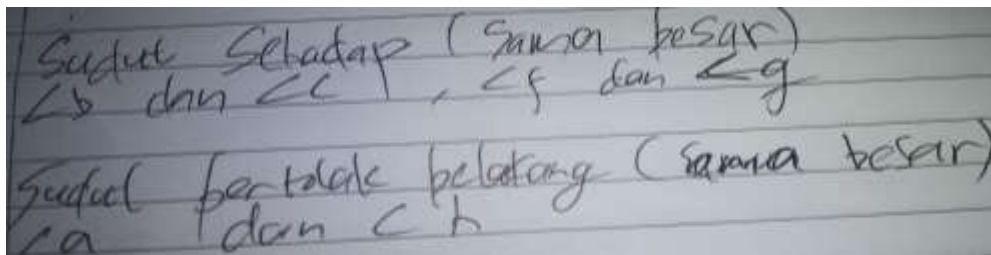 Sudut Sehadap (Sama besar)
<b dan <c , <f dan <g
Sudut bertolak belakang (sama besar)
<a dan < h